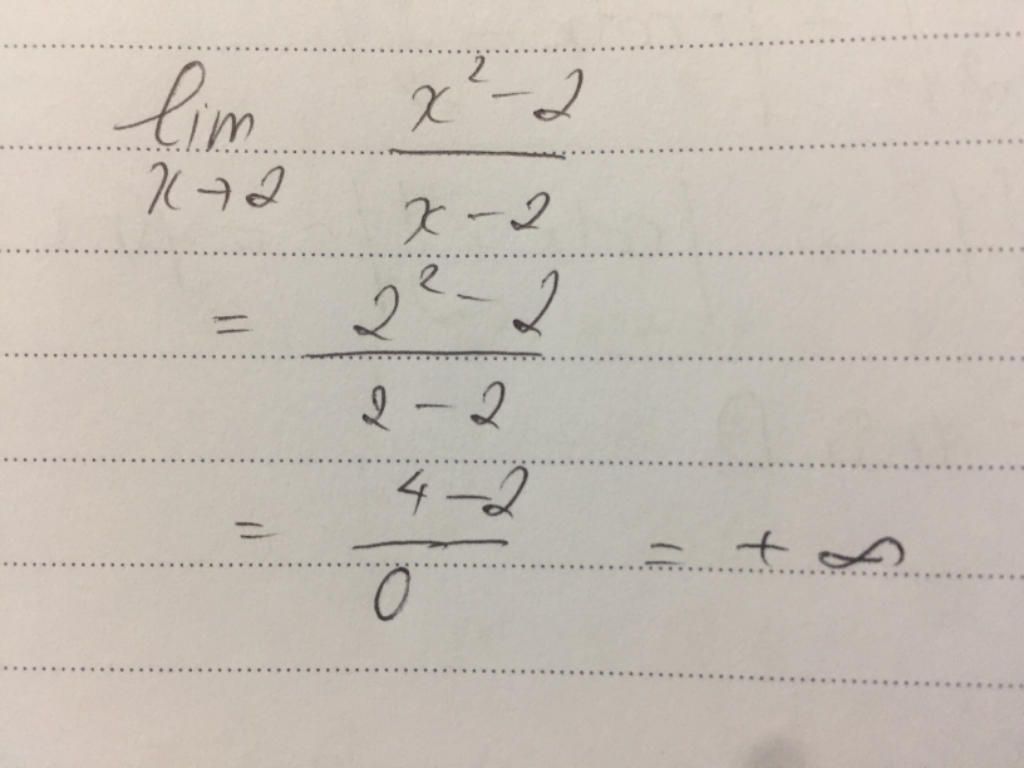 lim x→2 (x² - 2)/(x - 2)
= (2² - 2)/(2 - 2)
= (4 - 2)/0 = + ∞